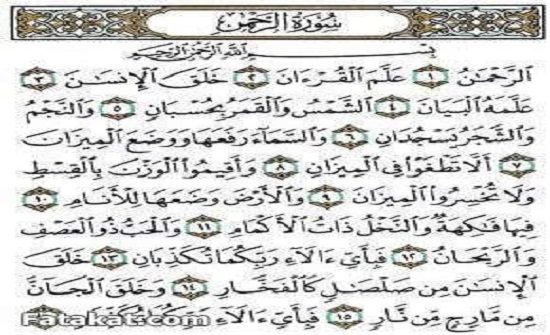 سُورَةُ الرَّحْمَٰن
بِسْمِ اللَّهِ الرَّحْمَٰنِ الرَّحِيمِ
الرَّحْمَٰنُ ١ عَلَّمَ الْقُرْءَانَ ٢ خَلَقَ الْإِنسَٰنَ ٣
عَلَّمَهُ الْبَيَانَ ٤ الشَّمْسُ وَالْقَمَرُ بِحُسْبَانٍ ٥ وَالنَّجْمُ
وَالشَّجَرُ يَسْجُدَانِ ٦ وَالسَّمَاءَ رَفَعَهَا وَوَضَعَ الْمِيزَانَ
٧ أَلَّا تَطْغَوْا فِي الْمِيزَانِ ٨ وَأَقِيمُوا الْوَزْنَ بِالْقِسْطِ
وَلَا تُخْسِرُوا الْمِيزَانَ ٩ وَالْأَرْضَ وَضَعَهَا لِلْأَنَامِ ١٠
فِيهَا فَٰكِهَةٌ وَالنَّخْلُ ذَاتُ الْأَكْمَامِ ١١ وَالْحَبُّ ذُو الْعَصْفِ
وَالرَّيْحَانُ ١٢ فَبِأَيِّ ءَالَاءِ رَبِّكُمَا تُكَذِّبَانِ ١٣ خَلَقَ
الْإِنسَٰنَ مِن صَلْصَٰلٍ كَالْفَخَّارِ ١٤ وَخَلَقَ الْجَانَّ
مِن مَّارِجٍ مِّن نَّارٍ ١٥ فَبِأَيِّ ءَالَاءِ
Fatakat.com